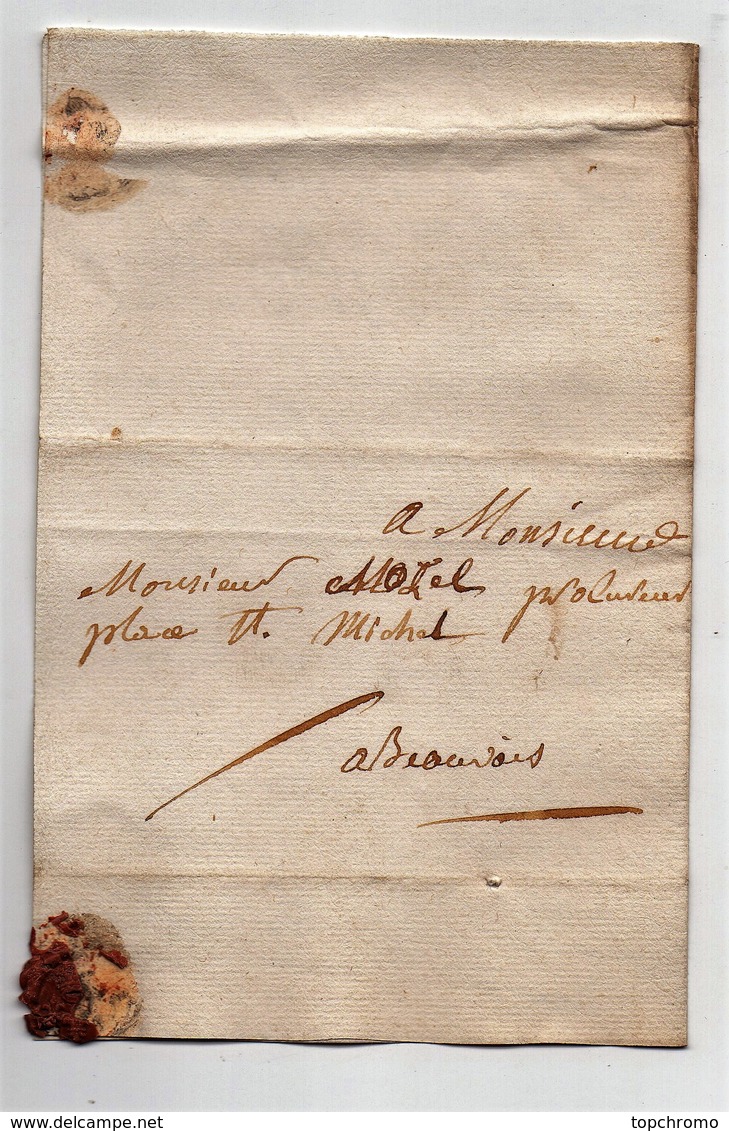 A Monsieur
Monsieur Mozel procureur
place St. Michel
a Beauvais
topchromo